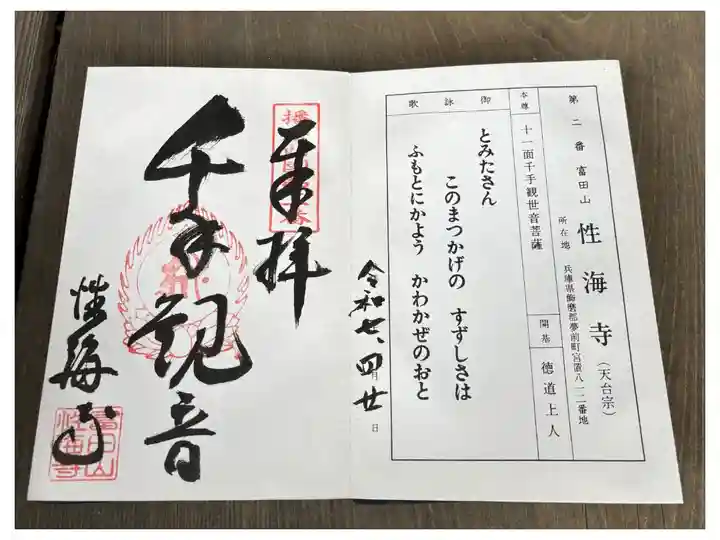 第二番 富田山 性海寺(天台宗)
所在地 兵庫県飾磨郡夢前町宮置八一二番地
本尊 十一面千手観世音菩薩
開基 徳道上人
御詠歌
とみたさん
このまつかげの すずしさは
ふもとにかよう かわかぜのおと
令和七、四月廿日
奉拝
千手観音
性海寺
富田山
性海寺